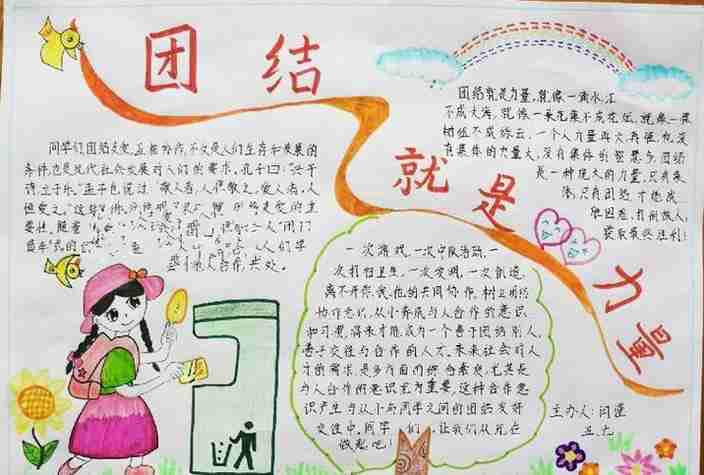 团结
就是
力量
同学们团结友爱,互相协作,不仅是人们生存和发展的
条件也是现代社会发展对人们的要求。孔子曰:"兴于
诗立于礼。"孟子也说过"敬人者,人恒敬之,爱人者,人
恒爱之。"这
要性。随着
团结就是力量,就像一滴水汇
不成大海,就像一朵花聚不成花坛,就像一棵
树组不成绿云,一个人力量再大再强,也没
有集体的力量大,没有集体的智慧多,团结
是一种强大的力量,只有集
体,只有团结,才能战
胜困难,打倒敌人,
获取最终胜利!
一次游戏,一次中队活动,一
次打扫卫生,一次发明,一次创造,
离不开你、我、他的共同协作。树立团结
协作意识,从小养成与人合作的意识
和习惯,将来才能成为一个善于团结别人,
善于交往与合作的人才。未来社会对人
才的需求是多方面的综合素质,尤其是
与人合作的意识尤为重要,这种合作意
识产生与从小和同学之间的团结友好
交往中,同学们,让我们从现在
做起吧!
主办人:闫
五.六